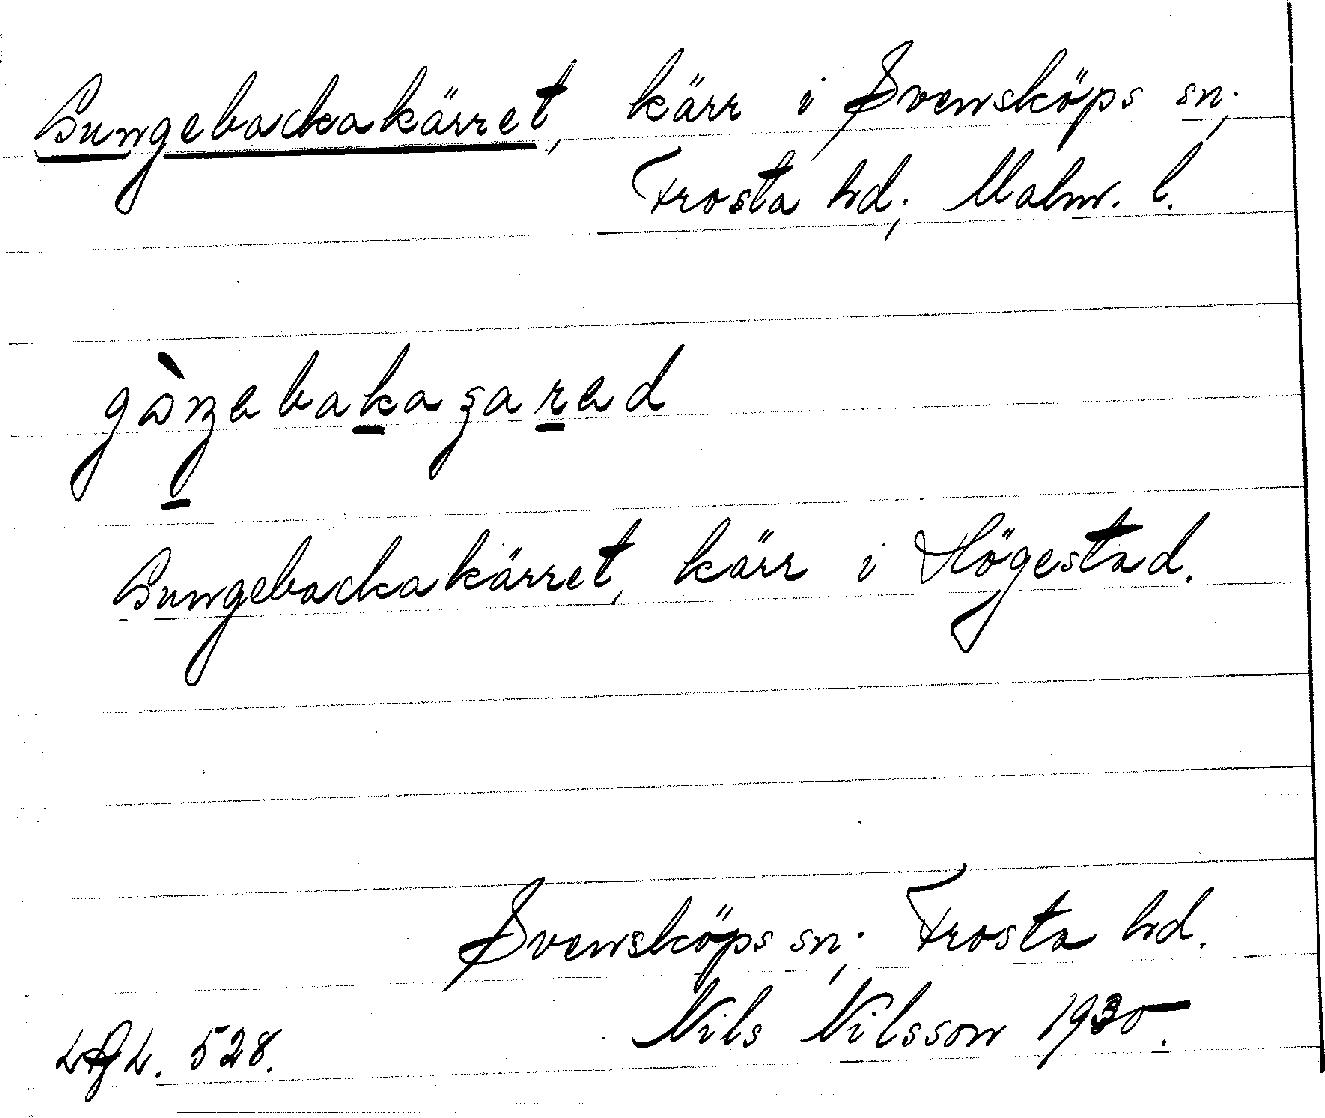 Gungebackakärret, kärr i Svensköps sn,
Frosta hd, Malm. l.
gòŋebakaʒared
Gungebackakärret, kärr i Högestad.
Svensköps sn, Frosta hd.
Nils Nilsson 1930.
528.